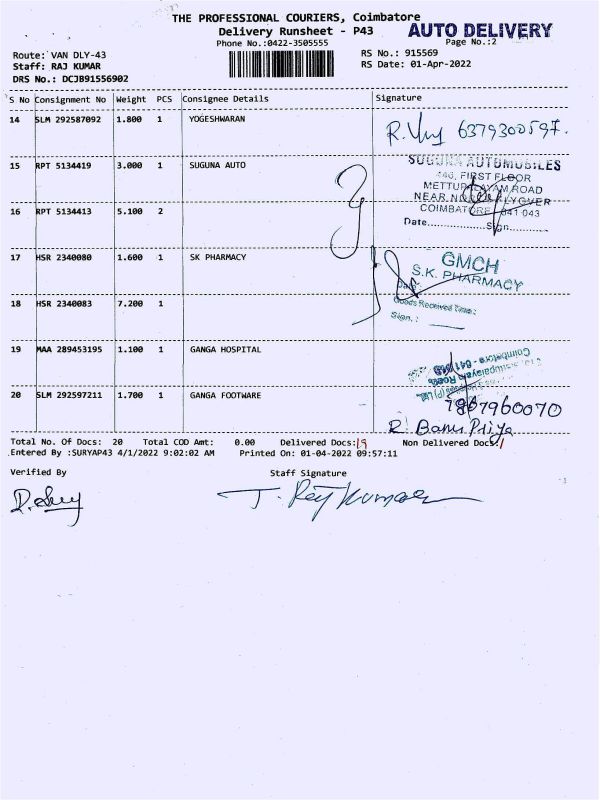 THE PROFESSIONAL COURIERS, Coimbatore
AUTO DELIVERY
Delivery Runsheet - P43
Phone No.:0422-3505555
Page No.:2
Route: VAN DLY-43
RS No.: 915569
Staff: RAJ KUMAR
RS Date: 01-Apr-2022
DRS No.: DCJB91556902
S No Consignment No Weight PCS Consignee Details Signature
14 SLM 292587092 1.800 1 YOGESHWARAN
R. 6379300597.
15 RPT 5134419 3.000 1 SUGUNA AUTO
SUGUNA AUTOMOBILES
446, FIRST FLOOR
METTUPALAYAM ROAD
NEAR FLYOVER
COIMBATORE 641 043
Date............ Sign............
16 RPT 5134413 5.100 2
17 HSR 2340080 1.600 1 SK PHARMACY
GMCH
S.K. PHARMACY
Date:
Goods Received Time:
Sign. :
18 HSR 2340083 7.200 1
19 MAA 289453195 1.100 1 GANGA HOSPITAL
Coimbatore - 641
20 SLM 292597211 1.700 1 GANGA FOOTWARE
7867960070
R. Banu Priya
Total No. Of Docs: 20 Total COD Amt: 0.00 Delivered Docs:19 Non Delivered Docs:1
Entered By :SURYAP43 4/1/2022 9:02:02 AM Printed On: 01-04-2022 09:57:11
Verified By Staff Signature
T. Raj Kumar